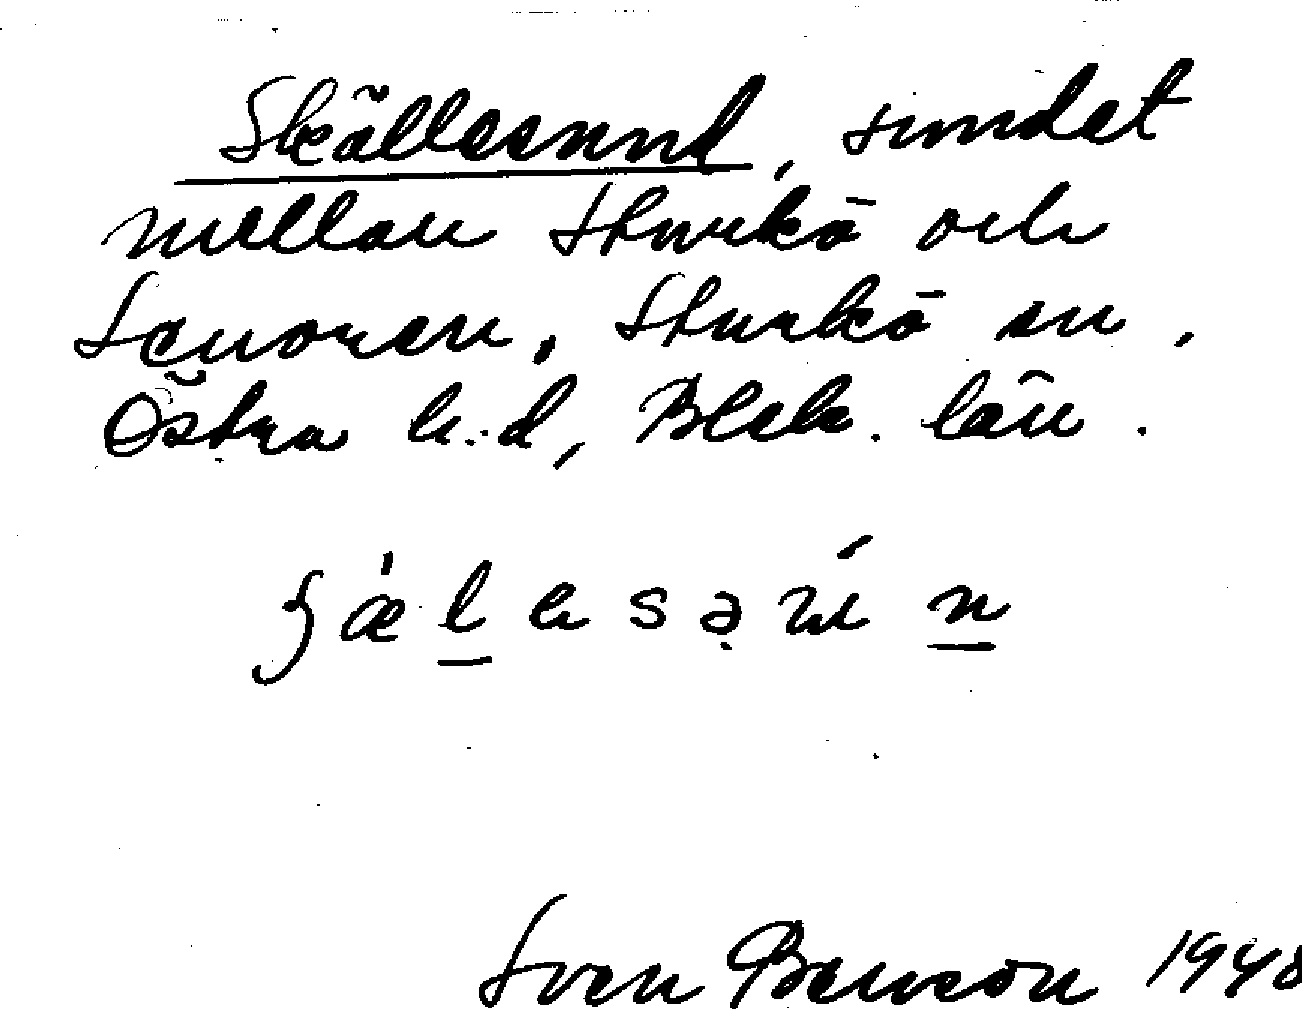 Skällesund, sundet
mellan Sturkö och
Senoren, Sturkö sn,
Östra h:d, Blek. län.
Sven Benson 1948